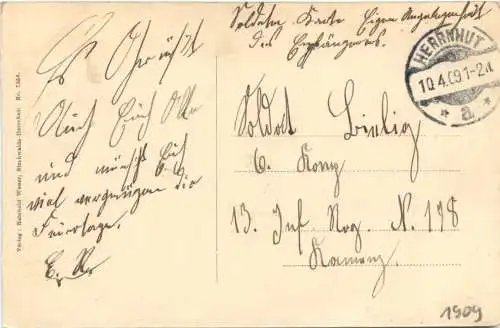 Soldaten Karte Eigen Angelegenheit
des Empfängers.
HERRNHUT
10.4.09.1-2N.
* a *
Es Grüßt
Auch Euch Alle
und wünscht Euch
viel vergnügen die
Feiertage.
E. R.
Soldat Bielig
6. Komp
13. Inf Reg. N. 178
Kamenz.
Verlag: Reinhold Wiesner, Buchwalde-Herrnhut No.
1909